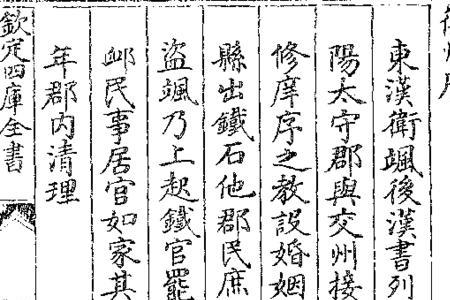 東漢衛颯後漢書列
陽太守郡與交州接
修庠序之教設婚姻
縣出鐵石他郡民庶
盜颯乃上起鐵官罷
卹民事居官如家其
年郡内清理
欽定四庫全書